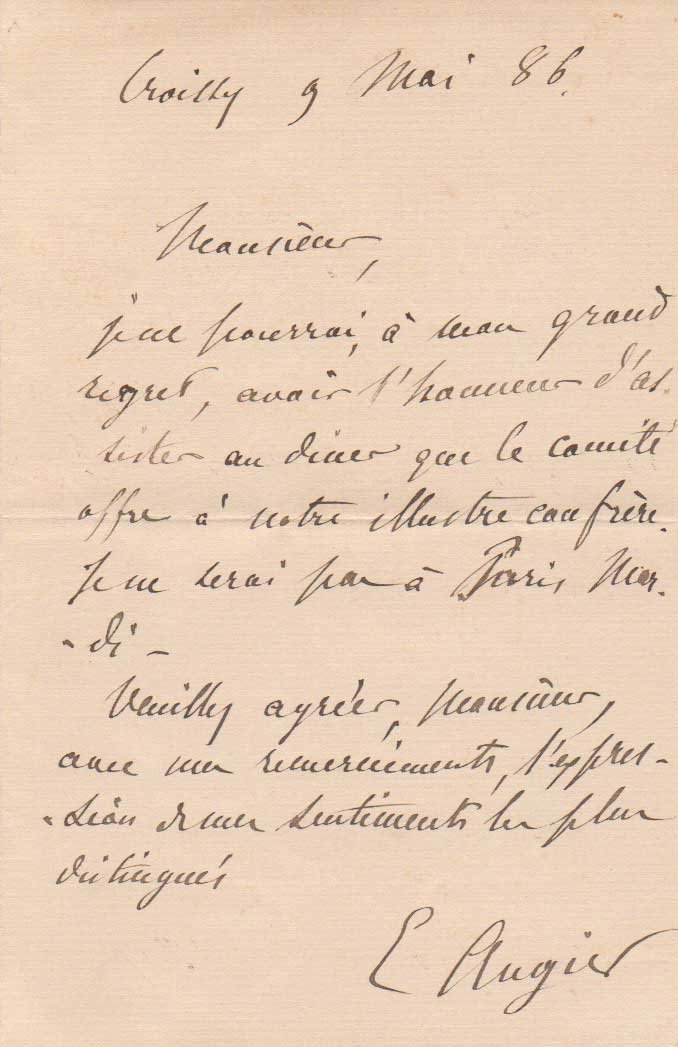 Croissy 9 Mai 86.
Monsieur,
je ne pourrai, à mon grand
regret, avoir l'honneur d'as-
sister au diner que le comité
offre à notre illustre confrère.
Je ne serai pas à Paris Mar-
-di -
Veuillez agréer, Monsieur,
avec mes remerciements, l'expres-
-sion de mes sentiments les plus
distingués
E Augier